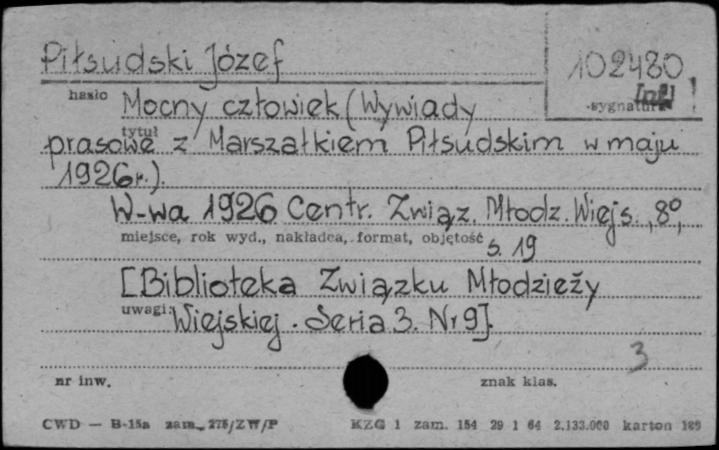 Piłsudski Józef
102480
hasło Mocny człowiek (Wywiady
sygnatura
tytuł
prasowe z Marszałkiem Piłsudskim w maju
1926r.).
W-wa 1926 Centr. Związ. Młodz. Wiejs., 8°,
miejsce, rok wyd., nakładca, format, objętość
s. 19
[Biblioteka Związku Młodzieży
uwagi: Wiejskiej. Seria 3. Nr 9].
3
nr inw.
znak klas.
CWD — B-15a zam. 275/ZW/P
KZG 1 zam. 154 29 1 64 2.133.000 karton